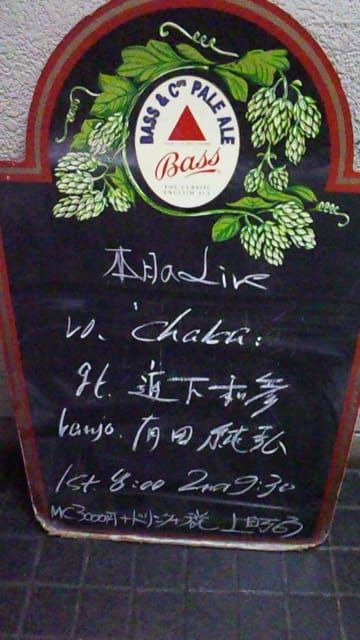 BASS & Co's PALE ALE
Bass
THE CLASSIC
ENGLISH ALE
本日のLive
vo. chaka.
gt. 道下和彦
banjo. 有田純弘
1st. 8:00 2nd 9:30
MC3000円+ドリンク+税